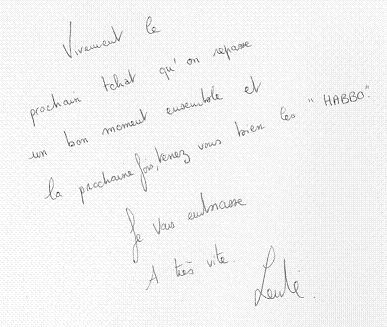 Vivement le
prochain tchat qu'on repasse
un bon moment ensemble et
la prochaine fois, tenez vous bien les "HABBO".
Je vous embrasse
A très vite